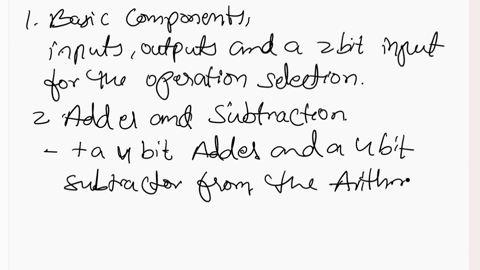 1. Basic Components,
inputs, outputs and a 2bit input
for the operation selection.
2 Adder and Subtraction
- + a 4 bit Adder and a 4bit
subtractor from the Arithm